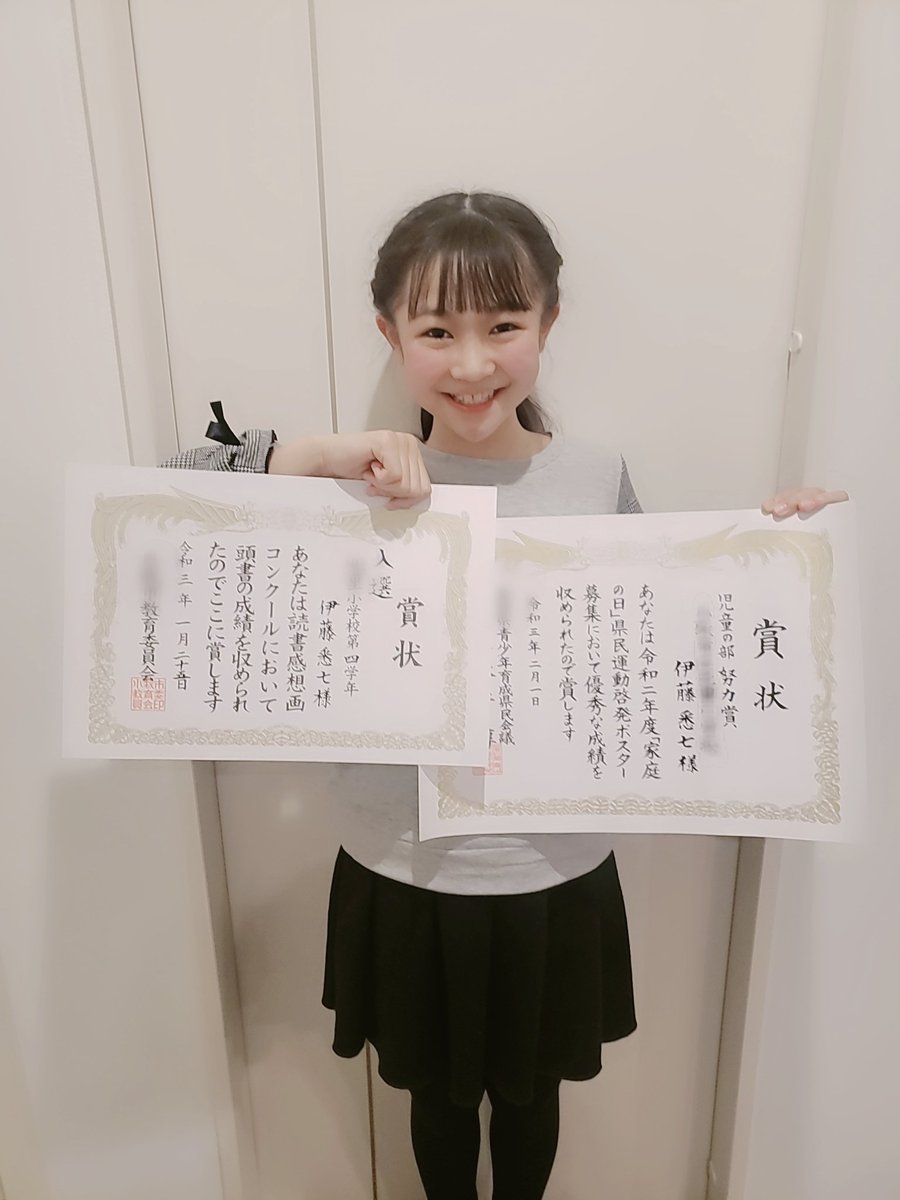 賞状
入選
小学校第四学年
伊藤悉七様
あなたは読書感想画
コンクールにおいて
頭書の成績を収められ
たのでここに賞します
令和三年一月二十五日
教育委員会
賞状
児童の部 努力賞
伊藤悉七様
あなたは令和二年度「家庭
の日」県民運動啓発ポスター
募集において優秀な成績を
収められたので賞します
令和三年二月一日
青少年育成県民会議